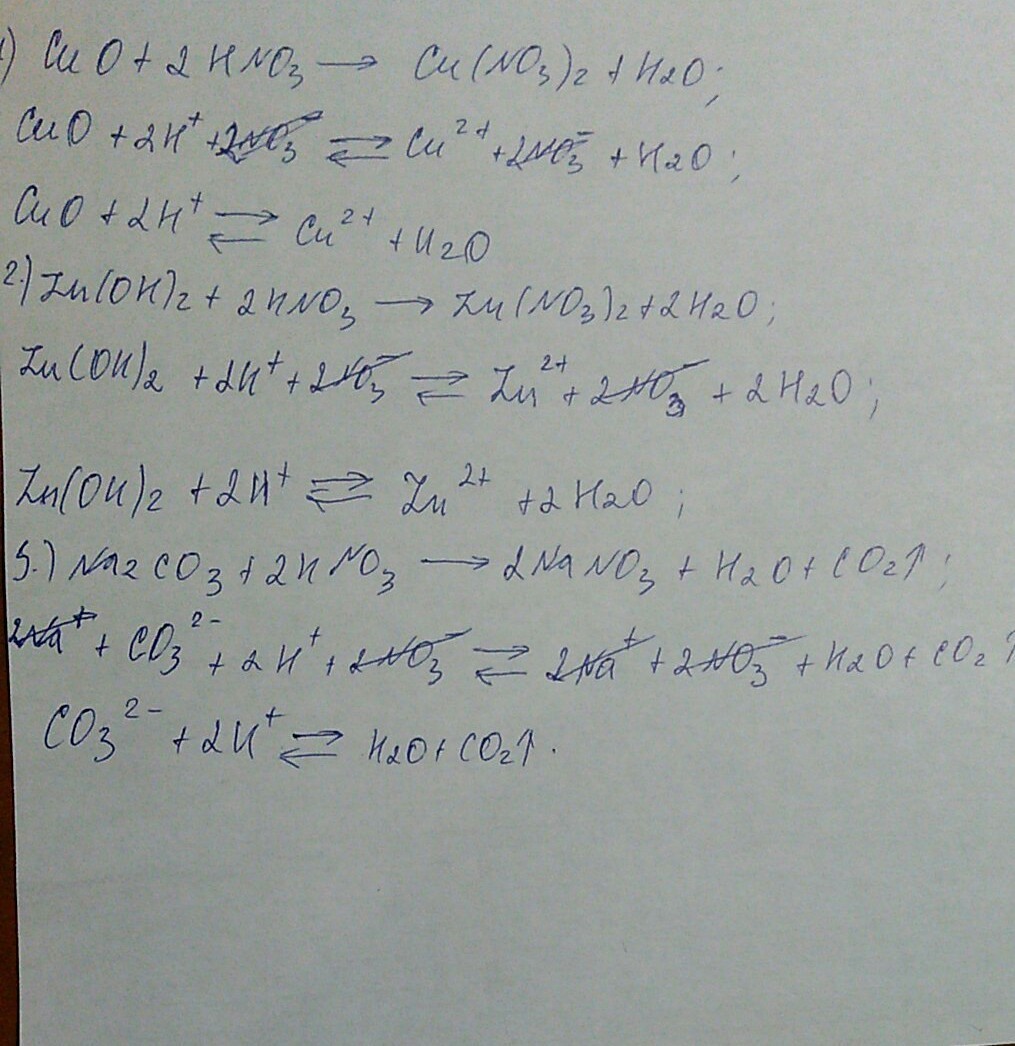 1) CuO + 2HNO₃ → Cu(NO₃)₂ + H₂O;
CuO + 2H⁺ + 2NO₃⁻ ⇄ Cu²⁺ + 2NO₃⁻ + H₂O;
CuO + 2H⁺ ⇄ Cu²⁺ + H₂O
2.) Zn(OH)₂ + 2HNO₃ → Zn(NO₃)₂ + 2H₂O;
Zn(OH)₂ + 2H⁺ + 2NO₃⁻ ⇄ Zn²⁺ + 2NO₃⁻ + 2H₂O;
Zn(OH)₂ + 2H⁺ ⇄ Zn²⁺ + 2H₂O;
3.) Na₂CO₃ + 2HNO₃ → 2NaNO₃ + H₂O + CO₂↑;
2Na⁺ + CO₃²⁻ + 2H⁺ + 2NO₃⁻ ⇄ 2Na⁺ + 2NO₃⁻ + H₂O + CO₂↑
CO₃²⁻ + 2H⁺ ⇄ H₂O + CO₂↑.